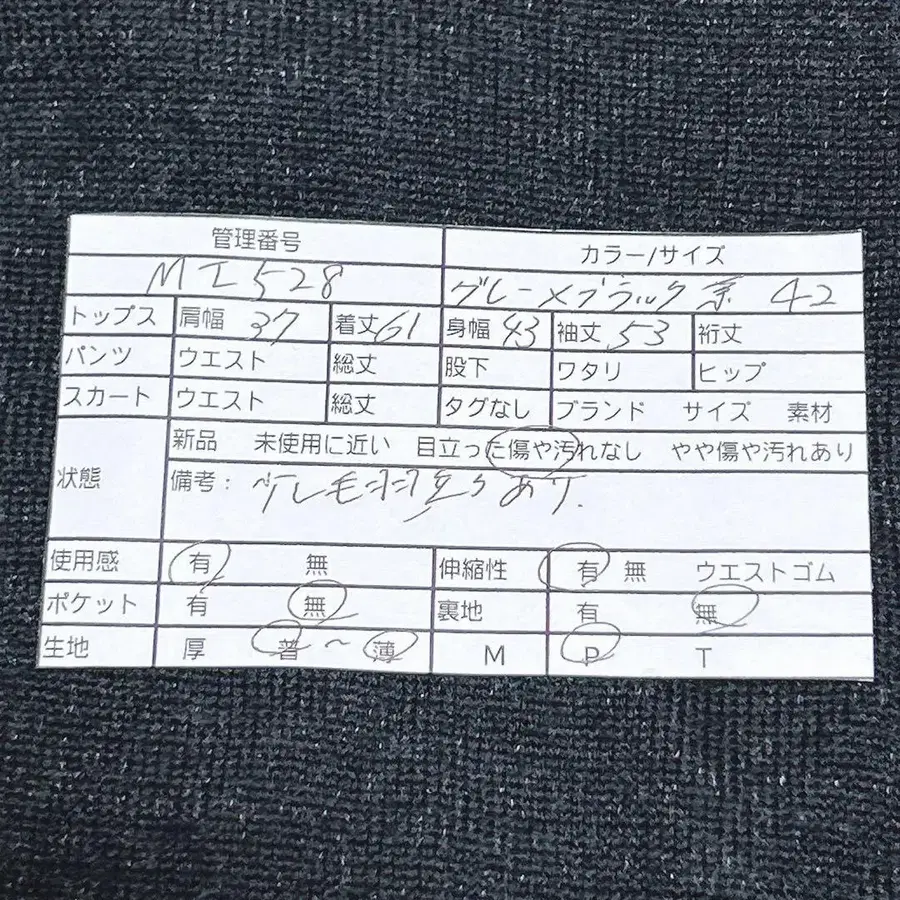 管理番号 カラー/サイズ
MI528 グレー×ブラック系 42
トップス 肩幅 37 着丈 61 身幅 43 袖丈 53 裄丈
パンツ ウエスト 総丈 股下 ワタリ ヒップ
スカート ウエスト 総丈 タグなし ブランド サイズ 素材
状態 新品 未使用に近い 目立った傷や汚れなし やや傷や汚れあり
備考: 少し毛羽立ちあり.
使用感 有 無 伸縮性 有 無 ウエストゴム
ポケット 有 無 裏地 有 無
生地 厚 普 ~ 薄 M P T